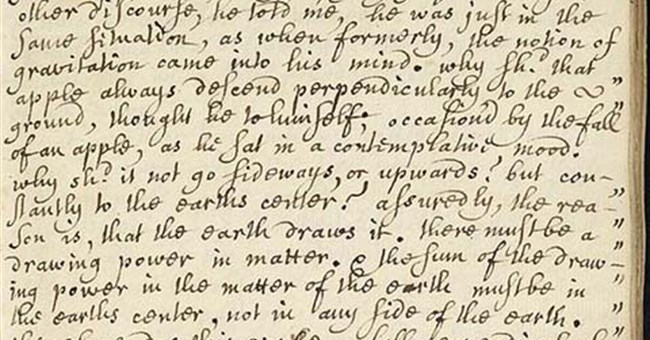 other discourse, he told me, he was just in the
same situation, as when formerly, the notion of
gravitation came into his mind. why sh.d that
apple always descend perpendicularly to the ~ "
ground, thought he to himself; occasion'd by the fall "
of an apple, as he sat in a contemplative mood.
why sh.d it not go sideways, or upwards? but con-
stantly to the earths center? assuredly, the rea- "
son is, that the earth draws it. there must be a "
drawing power in matter. & the sum of the draw- "
ing power in the matter of the earth must be in "
the earths center, not in any side of the earth. "